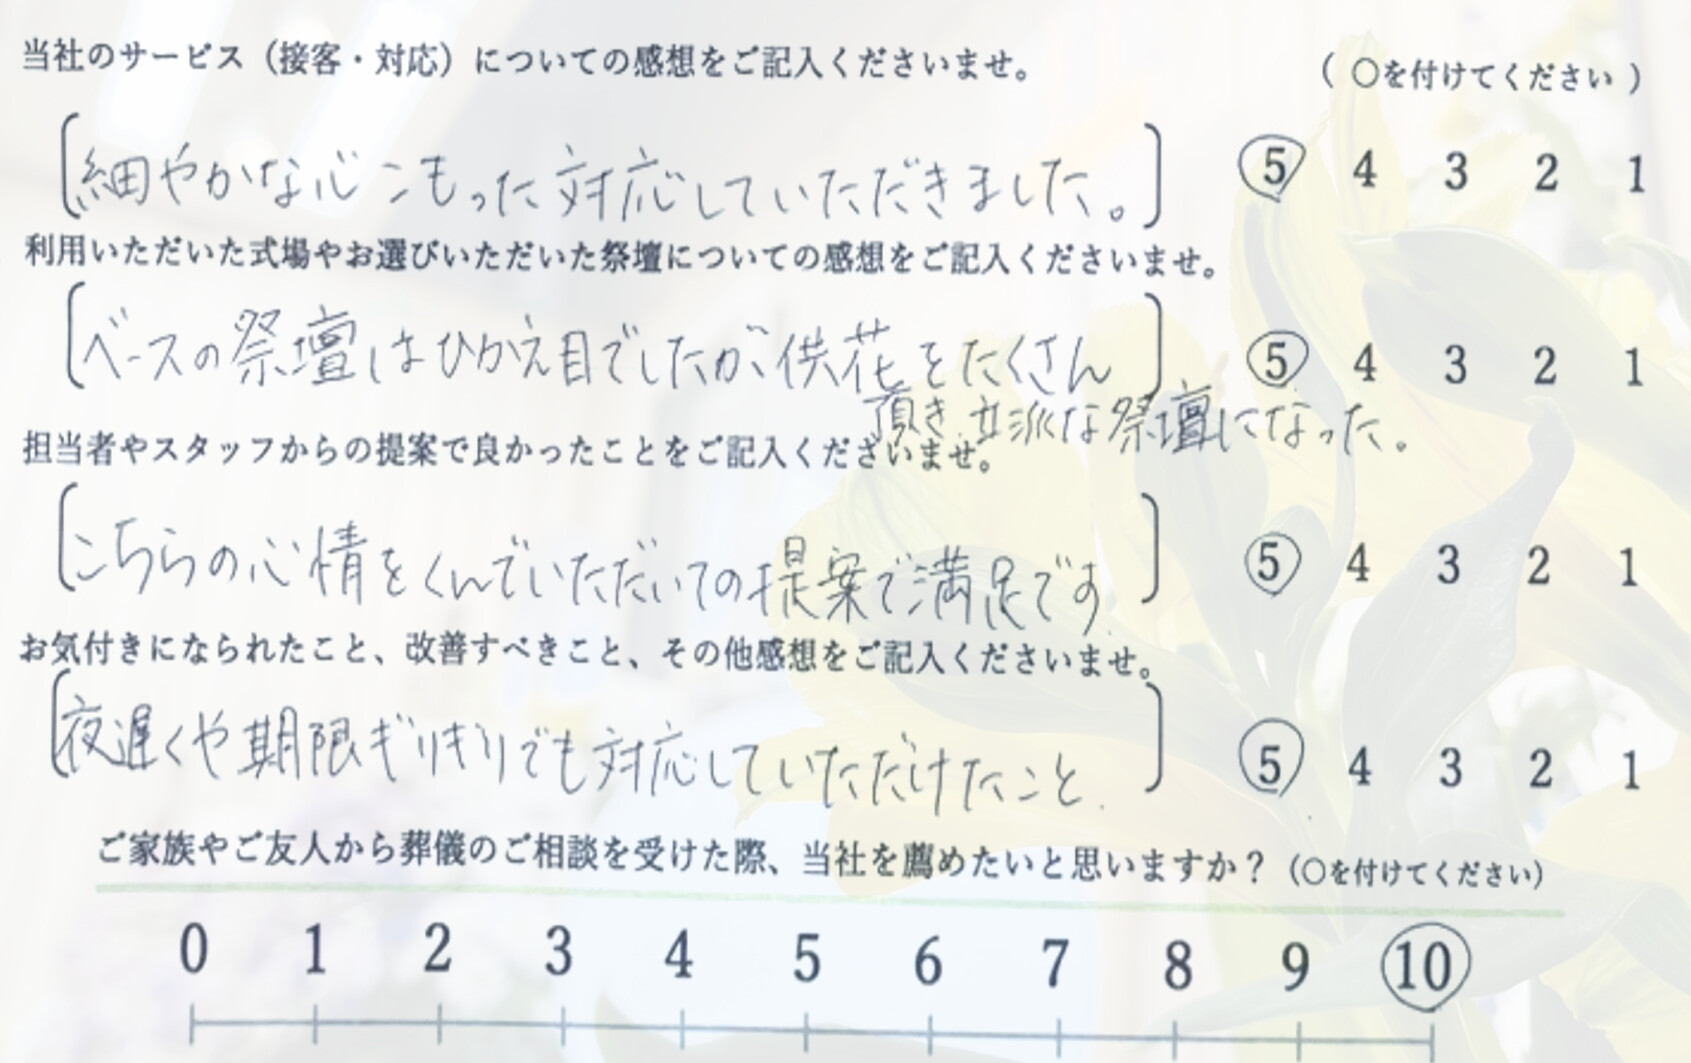 当社のサービス（接客・対応）についての感想をご記入くださいませ。
（ 〇を付けてください ）
細やかな心こもった対応していただきました。
5 4 3 2 1
利用いただいた式場やお選びいただいた祭壇についての感想をご記入くださいませ。
ベースの祭壇はひかえ目でしたが、供花をたくさん
頂き、立派な祭壇になった。
5 4 3 2 1
担当者やスタッフからの提案で良かったことをご記入くださいませ。
こちらの心情をくんでいただいての提案で満足です.
5 4 3 2 1
お気付きになられたこと、改善すべきこと、その他感想をご記入くださいませ。
夜遅くや期限ギリギリでも対応していただけたこと.
5 4 3 2 1
ご家族やご友人から葬儀のご相談を受けた際、当社を薦めたいと思いますか？（〇を付けてください）
0 1 2 3 4 5 6 7 8 9 10